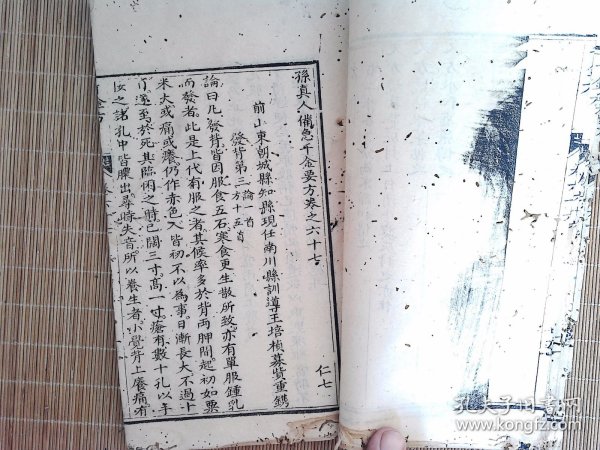 孫真人備急千金要方卷之六十七
前山東朝城縣知縣現任南川縣訓導王培楨募貲重鐫
發背第三 論一首 方十五首
論曰凡發背皆因服食五石寒食更生散所致亦有單服鍾乳
而發者此是上代有服之者其候率多於背兩胛間起初如粟
米大或痛或癢仍作赤色人皆初不以為事日漸長大不過十
日遂至於死其臨困之時已闊三寸高一寸瘡有數十孔以手
按之諸孔中皆膿出尋時失音所以養生者小覺背上癢痛有
仁七
孔夫子旧书网
www.kongfz.com